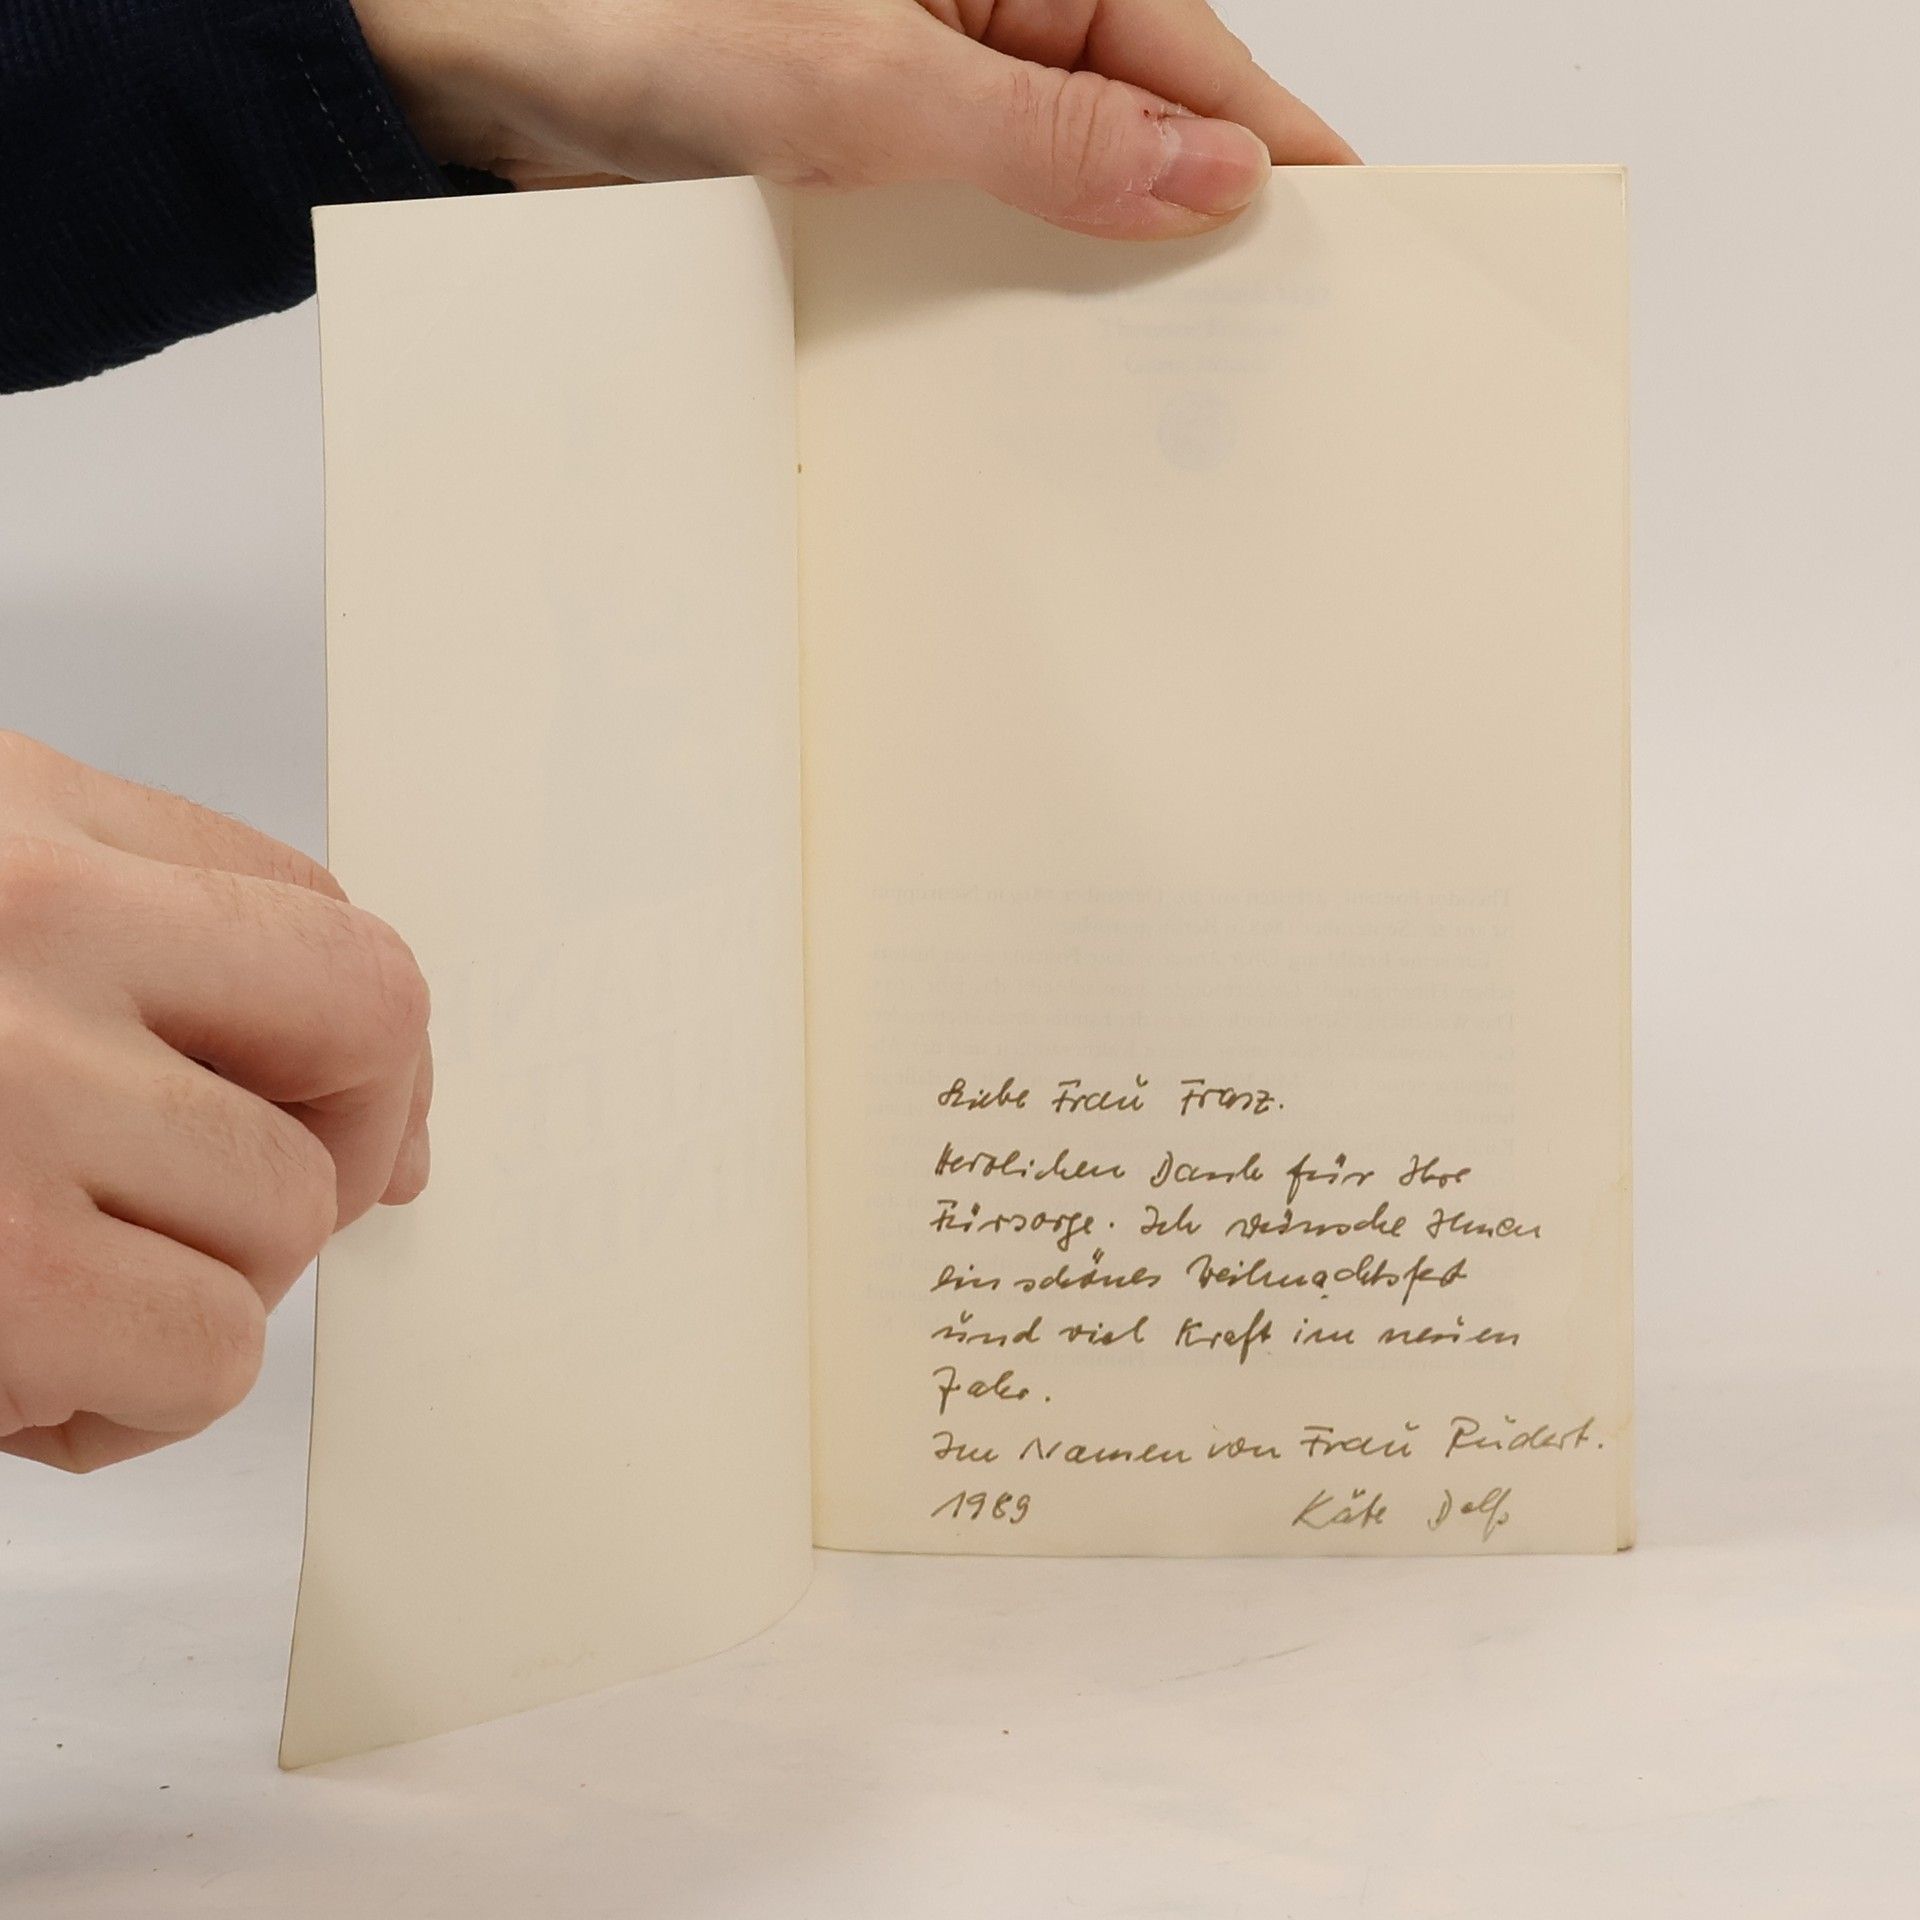 Liebe Frau Franz.
Herzlichen Dank für Ihre
Fürsorge. Ich wünsche Ihnen
ein schönes Weihnachtsfest
und viel Kraft im neuen
Jahr.
Im Namen von Frau Rüdert.
1989 Käte